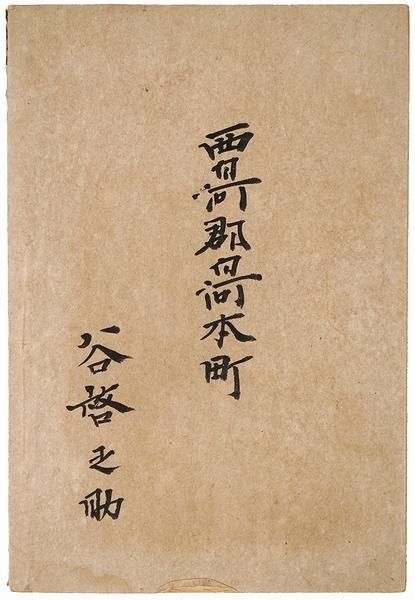 西白河郡白河本町
谷啓之助